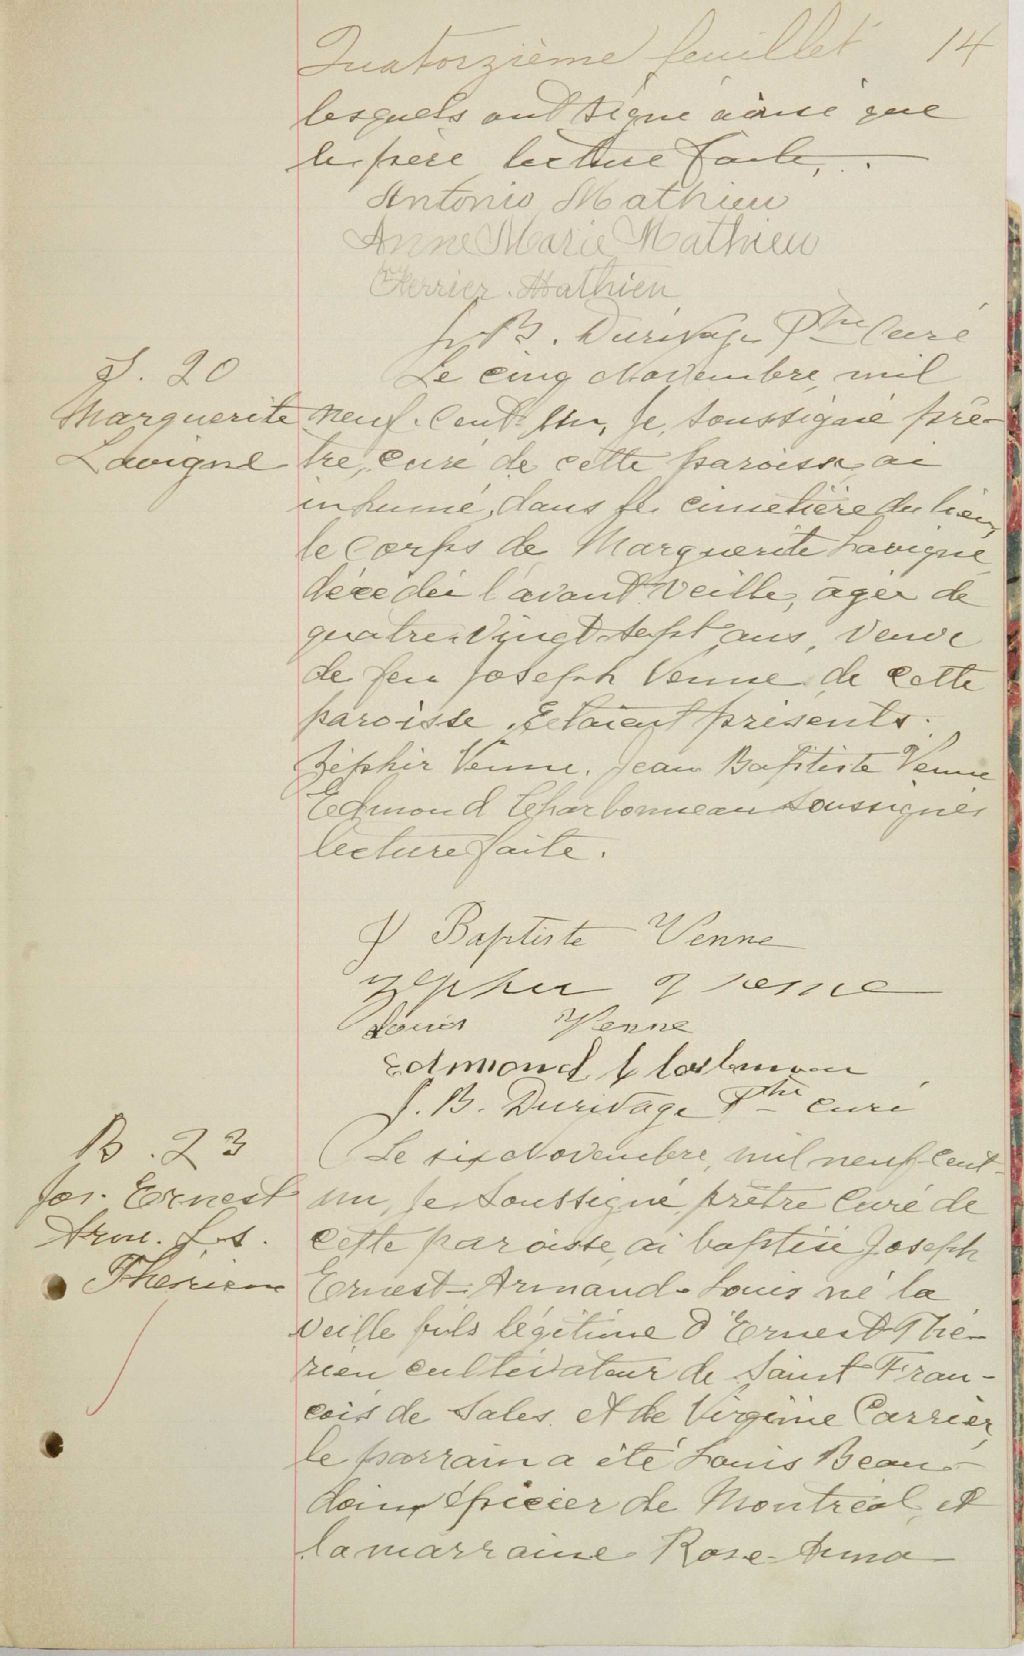 Quatorzième feuillet 14
lesquels ont signé ainsi que
le père lecture faite.
Antonio Mathieu
Anne Marie Mathieu
Ferrier Mathieu
J. B. Durivage Ptre Curé
S. 20
Marguerite
Lavigne
Le cinq Novembre mil
neuf-cent un, Je, soussigné prê-
tre, curé de cette paroisse, ai
inhumé, dans le cimetière du lieu,
le corps de Marguerite Lavigne
décédée l'avant veille, âgée de
quatre-vingt-sept ans, veuve
de feu Joseph Venne de cette
paroisse. Etaient présents:
Zéphir Venne. Jean Baptiste Venne
Edmond Charbonneau soussignés
lecture faite.
J Baptiste Venne
Zephir Venne
Louis Venne
Edmond
J. B. Durivage Ptre curé
B. 23
Jos. Ernest
Arm. Ls.
Therien
Le six Novembre, mil neuf-cent-
un, Je soussigné, prêtre curé de
cette paroisse, ai baptisé Joseph
Ernest-Armand-Louis né la
veille fils légitime d'Ernest Thé-
rien cultivateur de Saint Fran-
cois de Sales. et de Virginie Carrier,
le parrain a été Louis Beau-
doin, épicier de Montréal, et
la marraine Rose-Anna